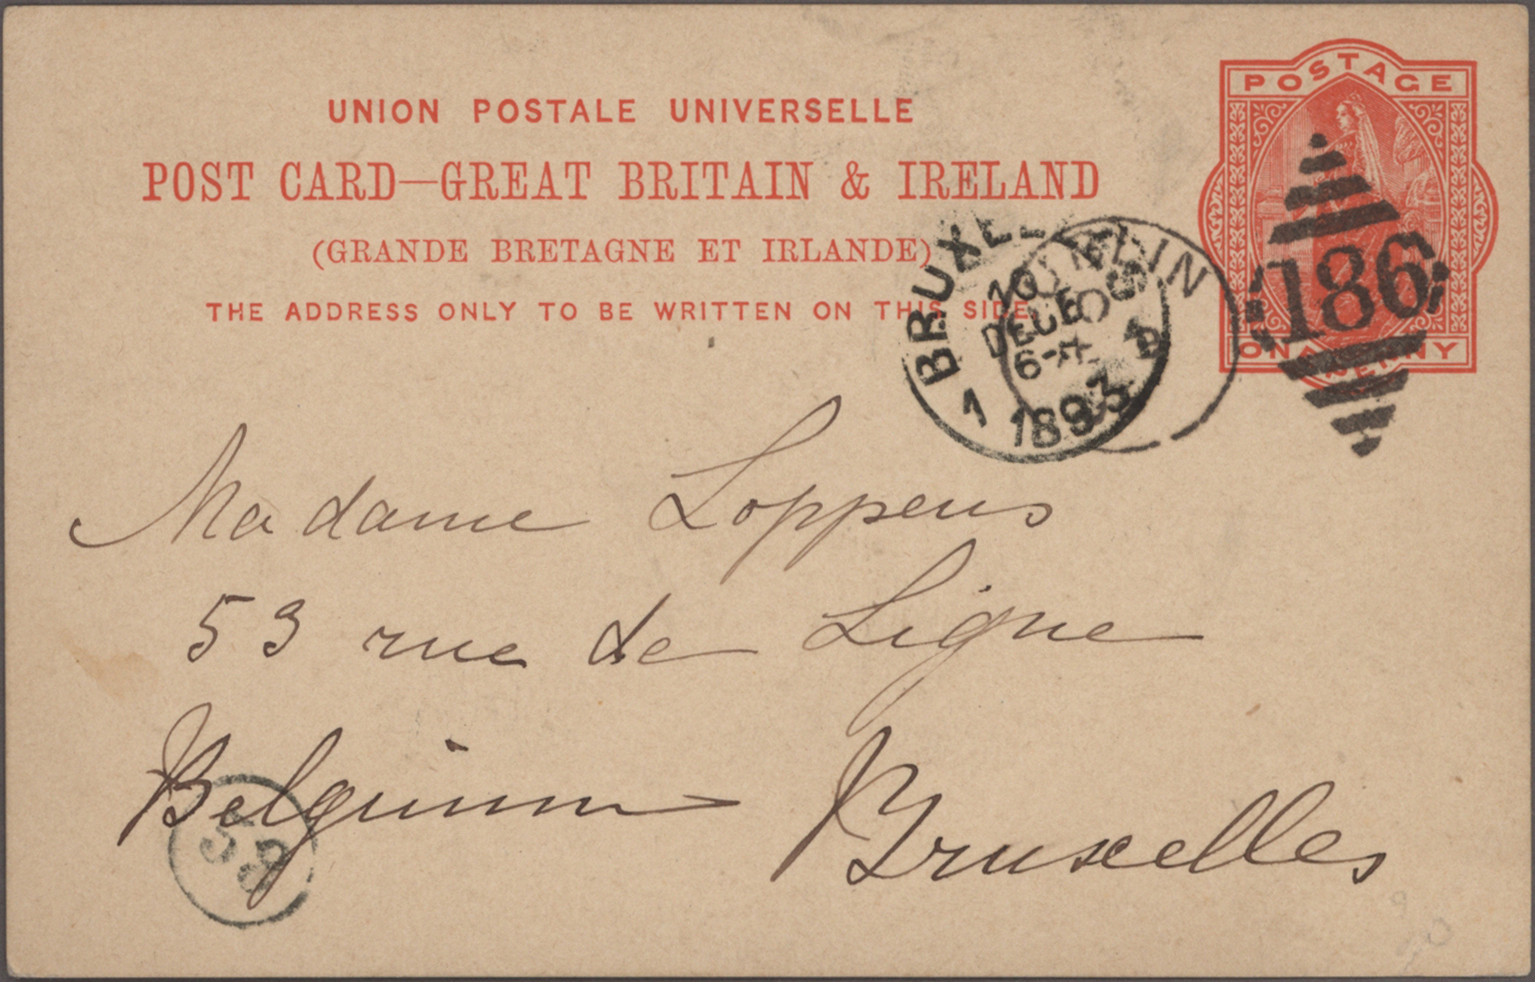 UNION POSTALE UNIVERSELLE
POST CARD—GREAT BRITAIN & IRELAND
(GRANDE BRETAGNE ET IRLANDE)
THE ADDRESS ONLY TO BE WRITTEN ON THIS SIDE
POSTAGE
ONE PENNY
186
BRUXELLES
10
DEC
6-
1 1893
Madame Loppens
53 rue de Ligne
Belgium Bruxelles